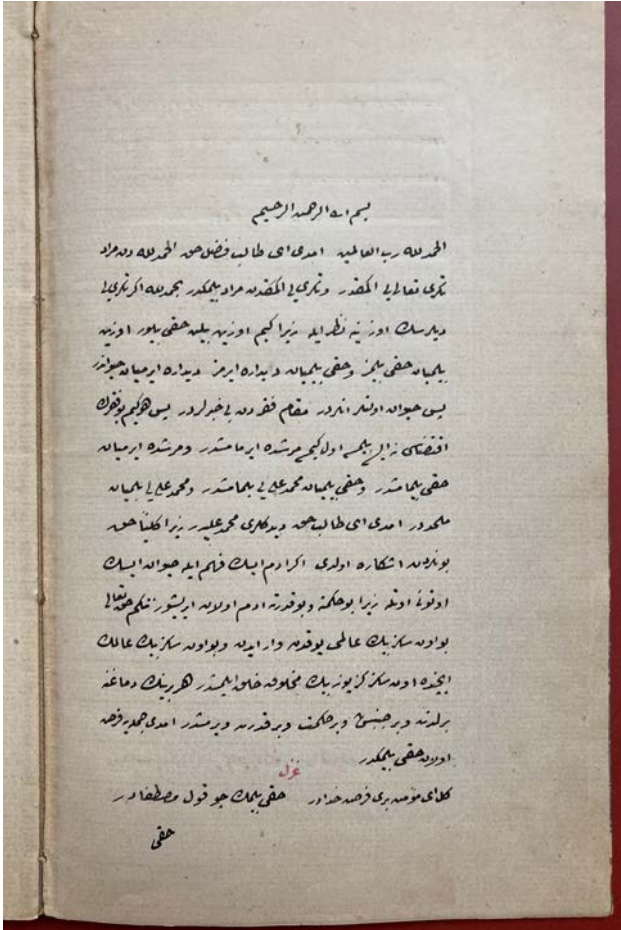 بسم الله الرحمن الرحيم
الحمد لله رب العالمين امدى اى طالب فضل حق الحمد لله دن مراد
تكرى تعالى يى اكمقدر وتكرى يى اكمقدن مراد بيلمكدر بحمد لله اكر تكرى يى
ديلرسك اوزينه نظر ايله زيرا كيم اوزين بيلن حقى بيلور اوزين
بيلميان حقى بيلمز وحقى بيلميان ديداره ايرمز ديداره ايرميان حيواندر
پس حيوان اولنلر انلردر مقام فقردن بى خبرلردر پس هر كيم بو فقرك
اقتضاسن بيلمسه اول كيمسه مرشده ايرمامشدر ومرشده ايرميان
حقى بيلمامشدر وحقى بيلميان محمد على يى بيلمامشدر ومحمد على يى بيلميان
ملحددر امدى اى طالب حق ديدكلرى محمد عليدر زيرا كليا حق
بونلردن اشكاره اولدى اكر ادم ايسك فهم ايله حيوان ايسك
اوتون اوتله زيرا بو حكمته وبو قدرته ادم اولان ايريشور نتكم حق تعالى
بو اون سكز بيك عالمى يوقدن وار ايدن وبو اون سكز بيك عالمك
ايچنده اون سكز كز يوز بيك مخلوق خلق ايلمشدر هر برينك دماغنه
بر لذت وبر جنبش وبر حكمت وبر قدرت ويرمشدر امدى جمله يه فرض
اولان حقى بيلمكدر
غزل
كل اى مؤمن برى فرض خدادر حقى بيلمك چو قول مصطفادر
حقى